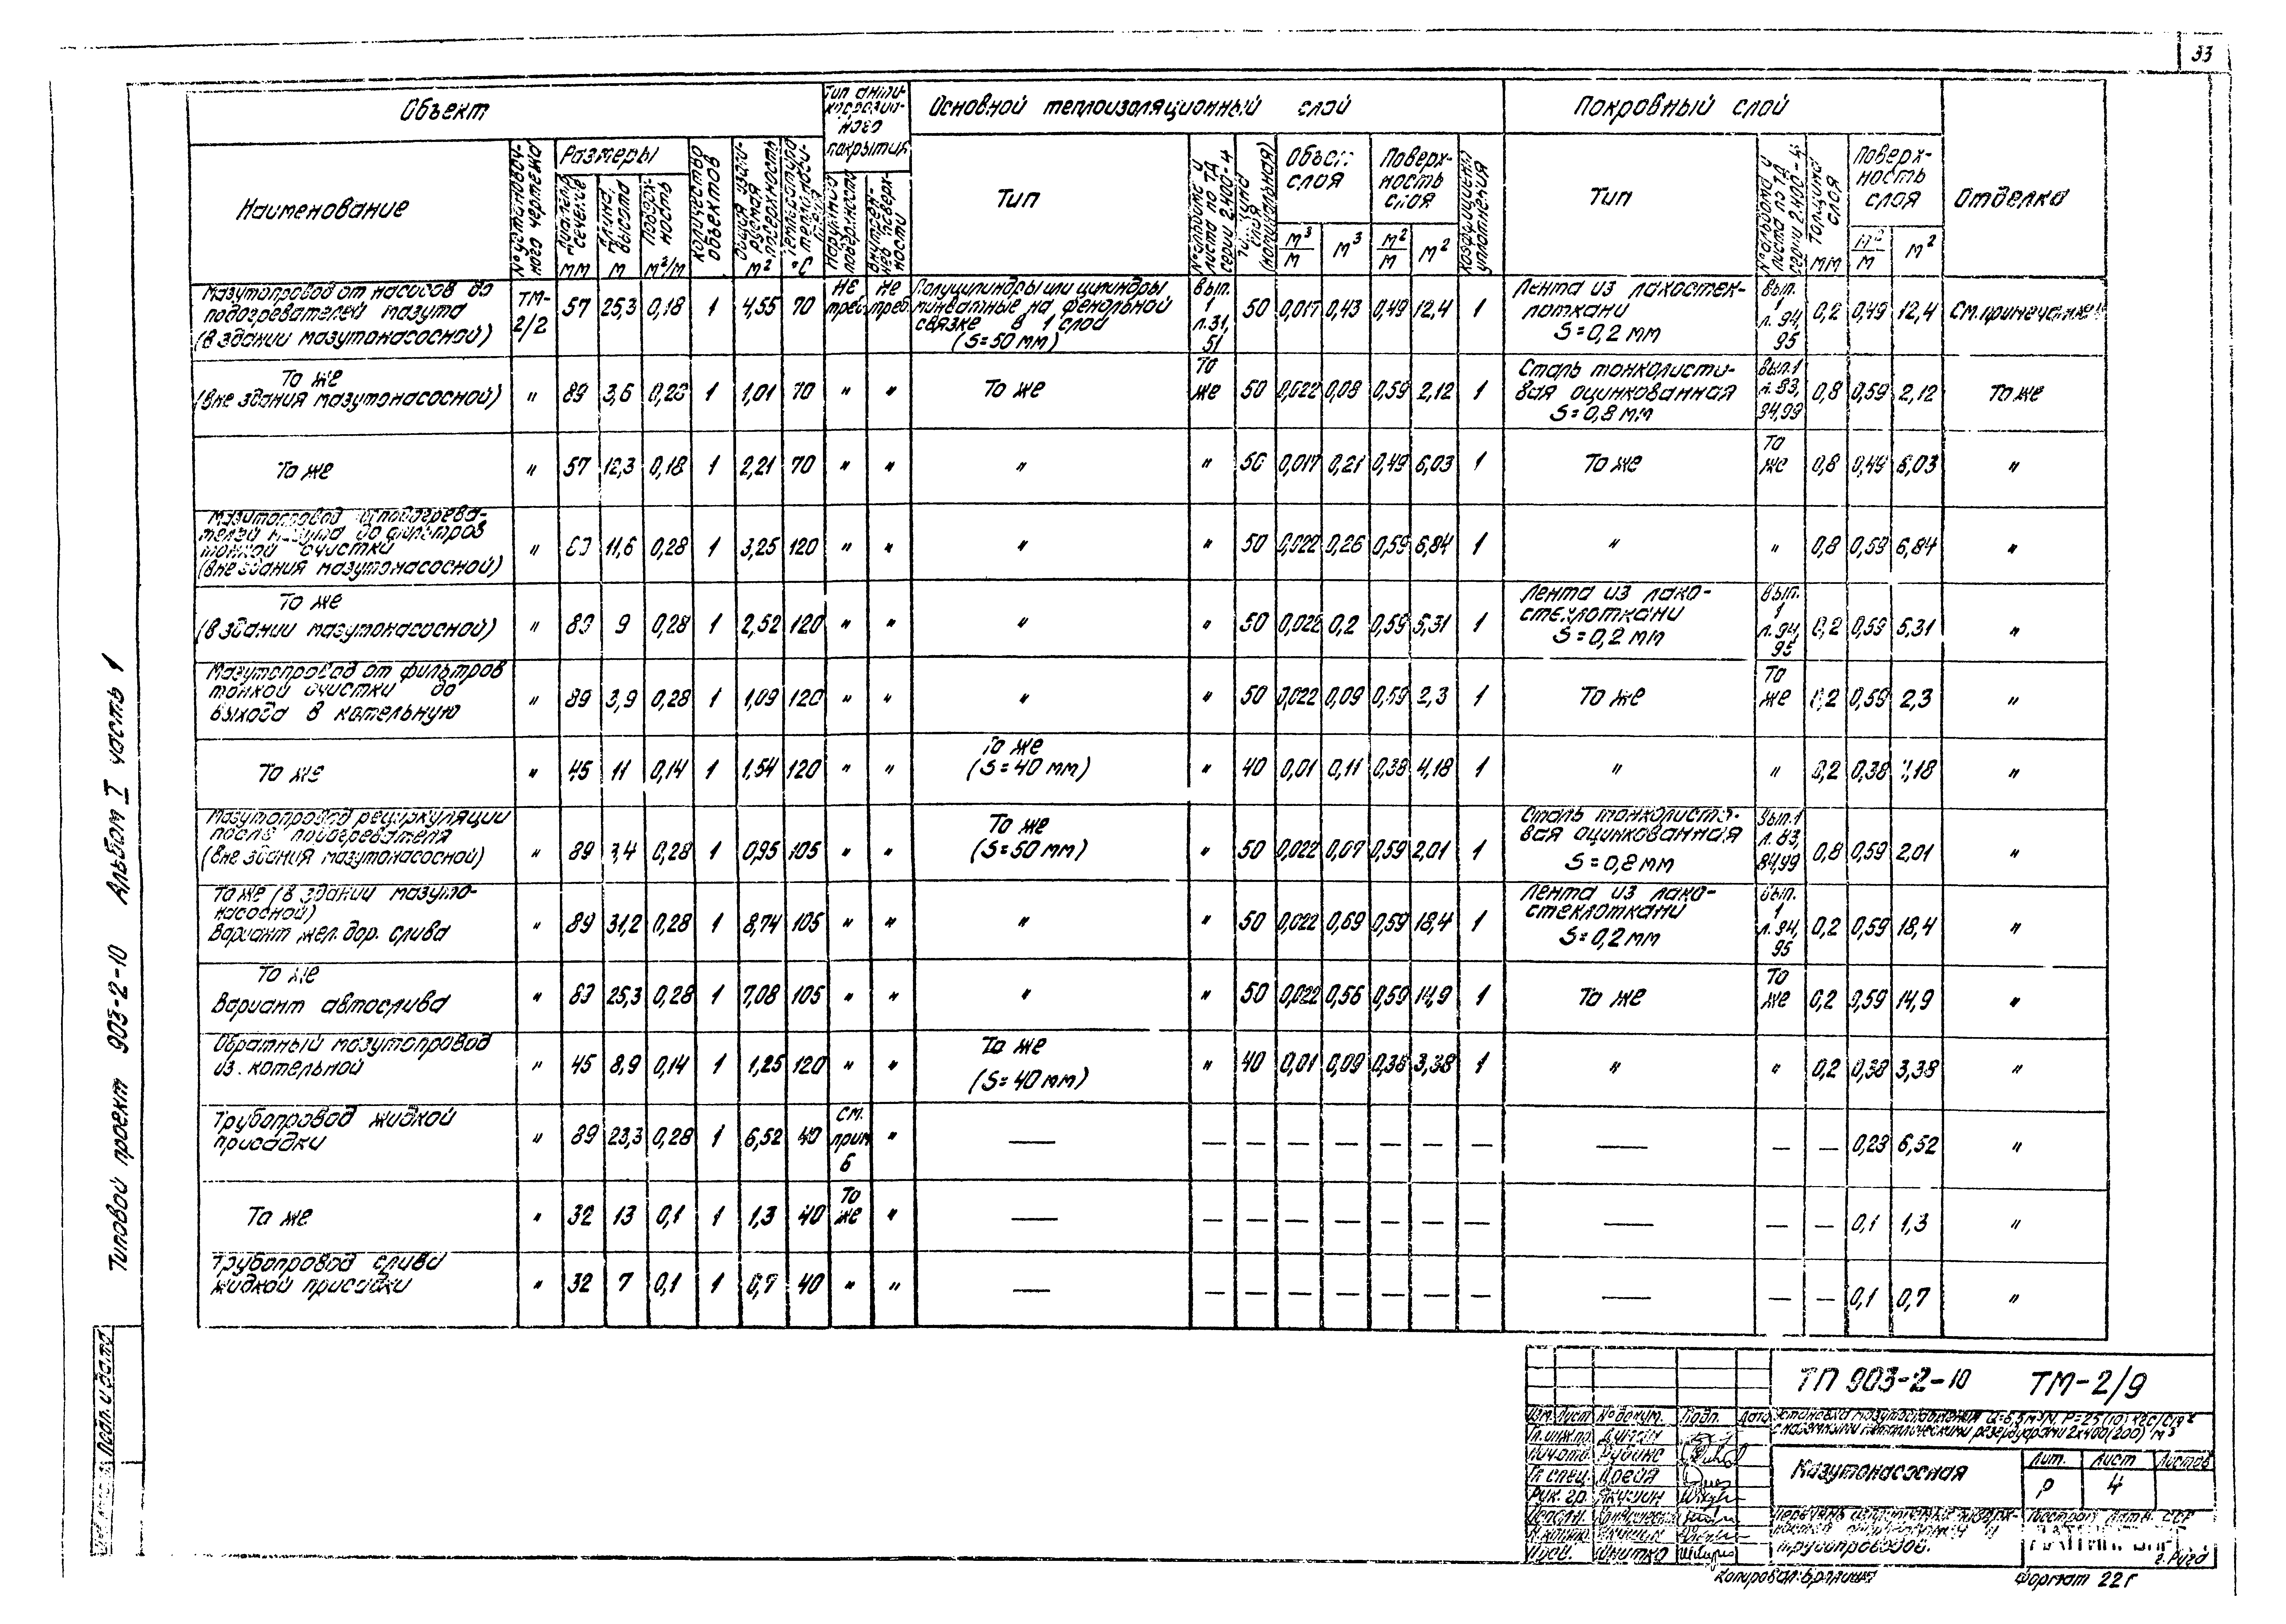 33
Объект
Тип анти-
коррозион-
ного
покрытия
Основной теплоизоляционный слой
Покровный слой
Наименование
№ установоч-
ного чертежа
Размеры
Диаметр, сечение
Длина, высота
Поверх-
ность
Количество объектов
Тип
Объем
слоя
Поверх-
ность
слоя
Коэффициент уплотнения
Тип
Толщина слоя
Поверх-
ность
слоя
Отделка
мм м м²/м м² °С м³/м м³ м²/м м² мм м²/м м²
Мазутопровод от насосов до
подогревателей мазута
(в здании мазутонасосной)
ТМ-
2/2
57 25,3 0,18 1 4,55 70
Не
треб.
Не
треб.
Полуцилиндры или цилиндры
минватные на фенольной
связке в 1 слой
(S=50 мм)
Вып.
1
л.31,
51
50 0,017 0,43 0,49 12,4 1
Лента из лакостек-
лоткани
S=0,2 мм
Вып.
1
л.94,
95
0,2 0,49 12,4 См. примечание
То же
(вне здания мазутонасосной)
" 89 3,6 0,28 1 1,01 70 " " То же
То
же
50 0,022 0,08 0,59 2,12 1
Сталь тонколисто-
вая оцинкованная
S=0,8 мм
Вып.1
л.83,
84,99
0,8 0,59 2,12 То же
То же " 57 12,3 0,18 1 2,21 70 " " " " 50 0,017 0,21 0,49 6,03 1 То же
То
же
0,8 0,49 6,03 "
Мазутопровод от подогрева-
телей мазута до фильтров
тонкой очистки
(вне здания мазутонасосной)
" 89 11,6 0,28 1 3,25 120 " " " " 50 0,022 0,26 0,59 6,84 1 " " 0,8 0,59 6,84 "
То же
(в здании мазутонасосной)
" 89 9 0,28 1 2,52 120 " " " " 50 0,022 0,2 0,59 5,31 1
Лента из лако-
стеклоткани
S=0,2 мм
Вып.
1
л.94,
95
0,2 0,59 5,31 "
Мазутопровод от фильтров
тонкой очистки до
выхода в котельную
" 89 3,9 0,28 1 1,09 120 " " " " 50 0,022 0,09 0,59 2,3 1 То же
То
же
0,2 0,59 2,3 "
То же " 45 11 0,14 1 1,54 120 " "
То же
(S=40 мм)
" 40 0,01 0,11 0,38 4,18 1 " " 0,2 0,38 4,18 "
Мазутопровод рециркуляции
после подогревателя
(вне здания мазутонасосной)
" 89 3,4 0,28 1 0,95 105 " "
То же
(S=50 мм)
" 50 0,022 0,07 0,59 2,01 1
Сталь тонколисто-
вая оцинкованная
S=0,8 мм
Вып.1
л.83,
84,99
0,8 0,59 2,01 "
То же (в здании мазуто-
насосной)
Вариант жел. дор. слива
" 89 31,2 0,28 1 8,74 105 " " " " 50 0,022 0,69 0,59 18,4 1
Лента из лако-
стеклоткани
S=0,2 мм
Вып.
1
л.94,
95
0,2 0,59 18,4 "
То же
Вариант автослива
" 89 25,3 0,28 1 7,08 105 " " " " 50 0,022 0,56 0,59 14,9 1 То же
То
же
0,2 0,59 14,9 "
Обратный мазутопровод
из котельной
" 45 8,9 0,14 1 1,25 120 " "
То же
(S=40 мм)
" 40 0,01 0,09 0,38 3,38 1 " " 0,2 0,38 3,38 "
Трубопровод жидкой
присадки
" 89 23,3 0,28 1 6,52 40
См.
прим
6
" — — — — — — — — — — — 0,28 6,52 "
То же " 32 13 0,1 1 1,3 40
То
же
" — — — — — — — — — — — 0,1 1,3 "
Трубопровод слива
жидкой присадки
" 32 7 0,1 1 0,7 40 " " — — — — — — — — — — — 0,1 0,7 "
Типовой проект 903-2-10 Альбом I часть 1
Подп. и дата
ТП 903-2-10 ТМ-2/9
Изм. Лист № докум. Подп. Дата
Установка мазутоснабжения Q=6,5 м³/ч, Р=25(10) кгс/см²
с наземными металлическими резервуарами 2х400(200) м³
Мазутонасосная
Лит. Лист Листов
Р 4
Гл. спец.
Рук. гр. Якушин
трубопроводов.
Госстрой Латв. ССР
г. Рига
Копировал:
Формат 22г